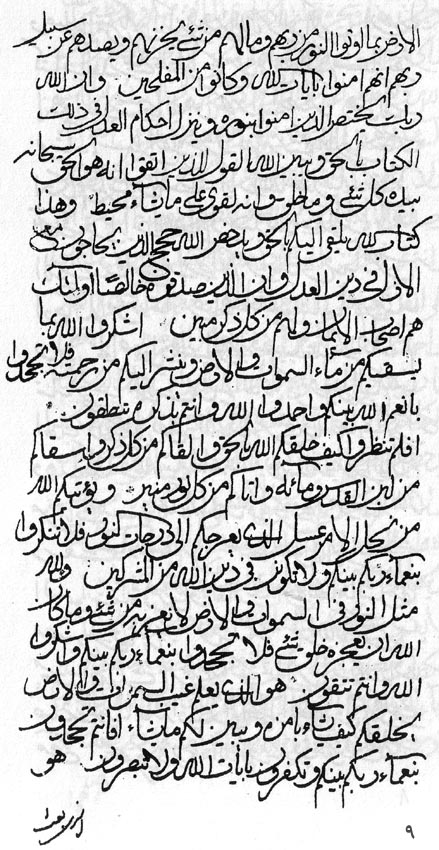 الارض بما اوتوا النور من ربهم وما لهم من شئ يحزنهم ويصدهم عن سبيل
ربهم انهم امنوا بايات الله وكانوا من المفلحين وان الله
ربك يختص الذين امنوا بنوره وينزل احكام العدل في ذلك
الكتاب بالحق ويبين الله القول للذين اتقوا انه هو الحق سبحانه
بيده كل شئ وما خلق وانه لقوى على ما يشاء محيط وهذا
كتاب الله يلقى اليكم بالحق ويدحض الله حجج الذين يحاجون مع
الاول في دين العدل وان الذين صدقوه خالصا اولئك
هم اصحاب الايمان ولهم من كل ذكر مبين اشكروا الله بما
يسقيكم من ماء السموات والارض وينشر اليكم من رحمته فلا تجحدوا
بانعم الله بينكم واحمدوا الله وانتم بذكره تنطقون
افلم تنظروا كيف خلقكم الله بالحق والقاكم من كل ذكر واسقاكم
من لبن القدس ومائه واتاكم من كل نور منير ويؤتيكم الله
من نحل الامر عسل الهدى يعرجكم الى درجات النور فلا تنكروا
بنعماء ربكم بينكم ولا تكونن في دين الله من المشركين ولله
مثل النور في السموات وفي الارض لا يعزب من شئ وما كان
الله ان يعجزه خلق شئ فلا تجحدوا بنعماء ربكم بينكم واشكروا
الله وانتم تتقون هو الذى يعلم غيب السموات والارض
يخلقكم كيف يشاء بامره ويبين لكم ما يشاء افانتم تجحدون
بنعماء ربكم بينكم وتكفرون بايات الله ولا تبصرون هو
٩